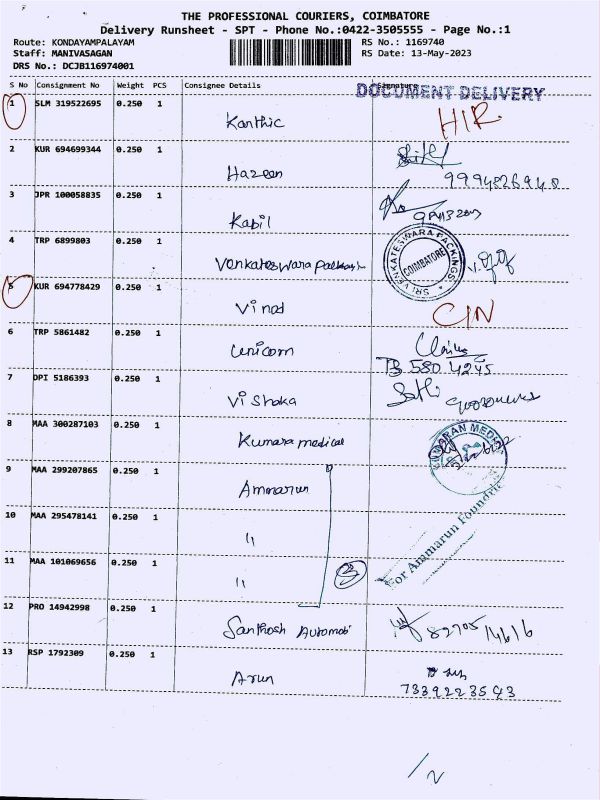 THE PROFESSIONAL COURIERS, COIMBATORE
Delivery Runsheet - SPT - Phone No.:0422-3505555 - Page No.:1
Route: KONDAYAMPALAYAM
Staff: MANIVASAGAN
DRS No.: DCJB116974001
RS No.: 1169740
RS Date: 13-May-2023
S No Consignment No Weight PCS Consignee Details Signature
DOCUMENT DELIVERY
1 SLM 319522695 0.250 1
Karthic HIR
2 KUR 694699344 0.250 1
Hazeen 9994826940
3 JPR 100058835 0.250 1
Kabil
4 TRP 6899803 0.250 1
Venkateswara packags
SRI VENKATESWARA PACKINGS
COIMBATORE
5 KUR 694778429 0.250 1
Vinod CIN
6 TRP 5861482 0.250 1
Unicorn
7 DPI 5186393 0.250 1
Vishaka
8 MAA 300287103 0.250 1
Kumara medical
9 MAA 299207865 0.250 1
Ammarun
10 MAA 295478141 0.250 1
"
11 MAA 101069656 0.250 1
" 3
For Ammarun Foundries
12 PRO 14942998 0.250 1
Santhosh Automobi
13 RSP 1792309 0.250 1
Arun 7339223543
/2